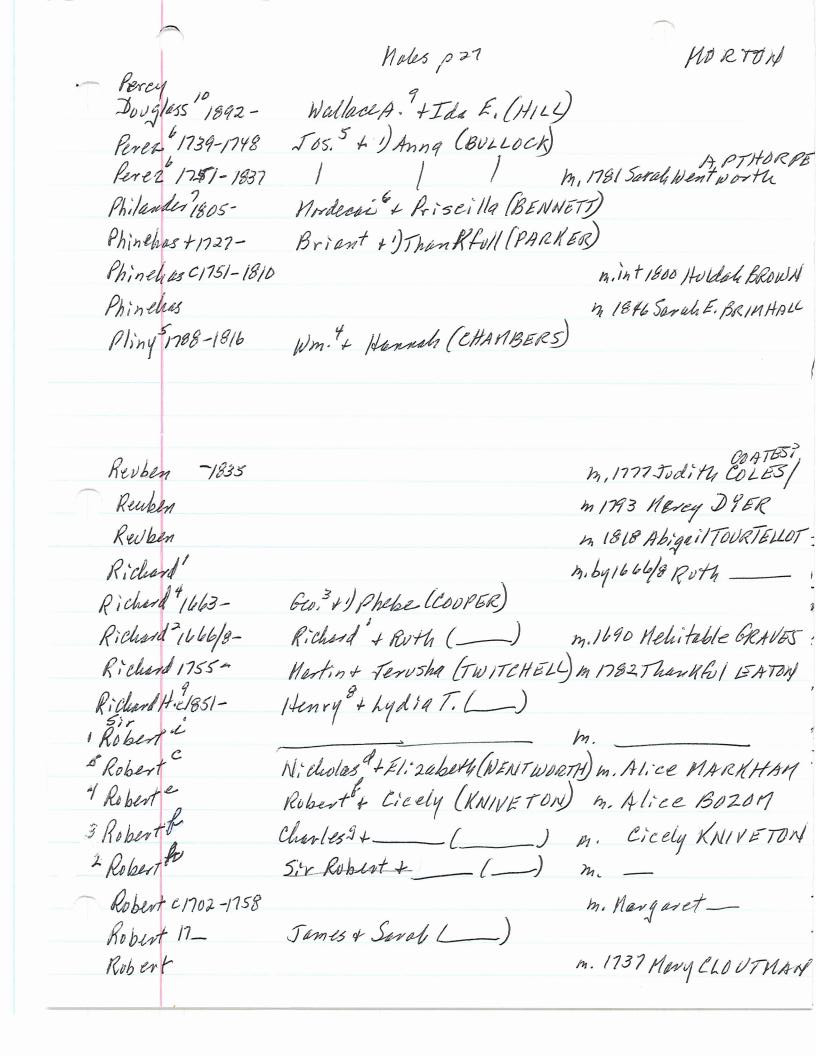 Notes p 27 MORTON
Percy
Douglass¹⁰ 1892- Wallace A.⁹ + Ida E. (HILL)
Perez⁶ 1739-1748 Jos.⁵ + 1) Anna (BULLOCK)
APTHORPE
Perez⁶ 1751-1837 | | | m. 1781 Sarah Wentworth
Philander⁷ 1805- Mordecai⁶ + Priscilla (BENNETT)
Phinehas + 1727- Briant + 1) Thankfull (PARKER)
Phinehas c1751-1810 m.int 1800 Huldah BROWN
Phinehas m 1846 Sarah E. BRIMHALL
Pliny⁵ 1788-1816 Wm.⁴ + Hannah (CHAMBERS)
COATES?
Reuben -1835 m. 1777 Judith COLES/
Reuben m 1793 Mercy DYER
Reuben m 1818 Abigail TOURTELLOT
Richard¹ m. by 1666/8 Ruth ____
Richard⁴ 1663- Geo.³ + 1) Phebe (COOPER)
Richard² 1666/8- Richard¹ + Ruth (____) m. 1690 Mehitable GRAVES
Richard 1755- Martin + Jerusha (TWITCHELL) m 1782 Thankful EATON
Richard H.⁹ c1851- Henry⁸ + Lydia T. (____)
Sir
1 Robert i ____ m. ____
5 Robert c Nicholas d + Elizabeth (WENTWORTH) m. Alice MARKHAM
4 Robert e Robert f + Cicely (KNIVETON) m. Alice BOZOM
3 Robert f Charles g + ____ (____) m. Cicely KNIVETON
2 Robert h Sir Robert + ____ (____) m. __
Robert c1702-1758 m. Margaret __
Robert 17__ James + Sarah (____)
Robert m. 1737 Mary CLOUTMAN